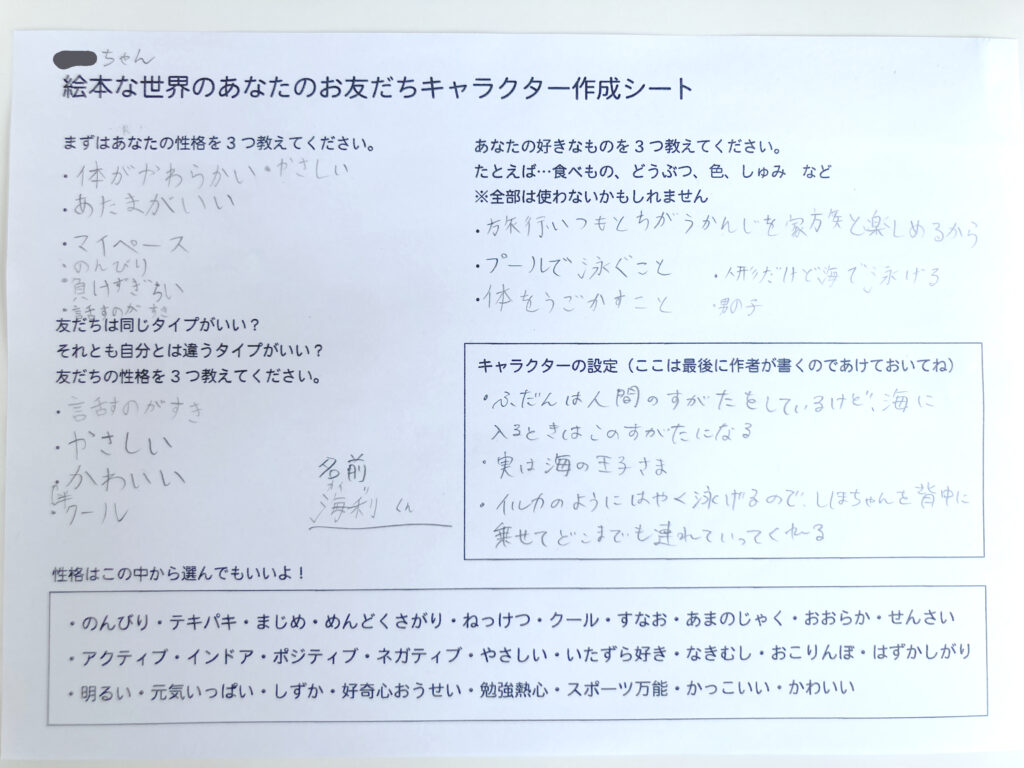 ちゃん
絵本な世界のあなたのお友だちキャラクター作成シート
まずはあなたの性格を3つ教えてください。
・体がやわらかい・やさしい
・あたまがいい
・マイペース
・のんびり
・負けずぎらい
・話すのがすき
友だちは同じタイプがいい？
それとも自分とは違うタイプがいい？
友だちの性格を3つ教えてください。
・話すのがすき
・やさしい
・かわいい
・クール
名前
海利くん
あなたの好きなものを3つ教えてください。
たとえば…食べもの、どうぶつ、色、しゅみ など
※全部は使わないかもしれません
・旅行いつもとちがうかんじを家族と楽しめるから
・プールで泳ぐこと
・人形だけど海で泳げる
・体をうごかすこと
・男の子
キャラクターの設定（ここは最後に作者が書くのであけておいてね）
・ふだんは人間のすがたをしているけど、海に
入るときはこのすがたになる
・実は海の王子さま
・イルカのようにはやく泳げるので、しほちゃんを背中に
乗せてどこまでも連れていってくれる
性格はこの中から選んでもいいよ！
・のんびり・テキパキ・まじめ・めんどくさがり・ねっけつ・クール・すなお・あまのじゃく・おおらか・せんさい
・アクティブ・インドア・ポジティブ・ネガティブ・やさしい・いたずら好き・なきむし・おこりんぼ・はずかしがり
・明るい・元気いっぱい・しずか・好奇心おうせい・勉強熱心・スポーツ万能・かっこいい・かわいい